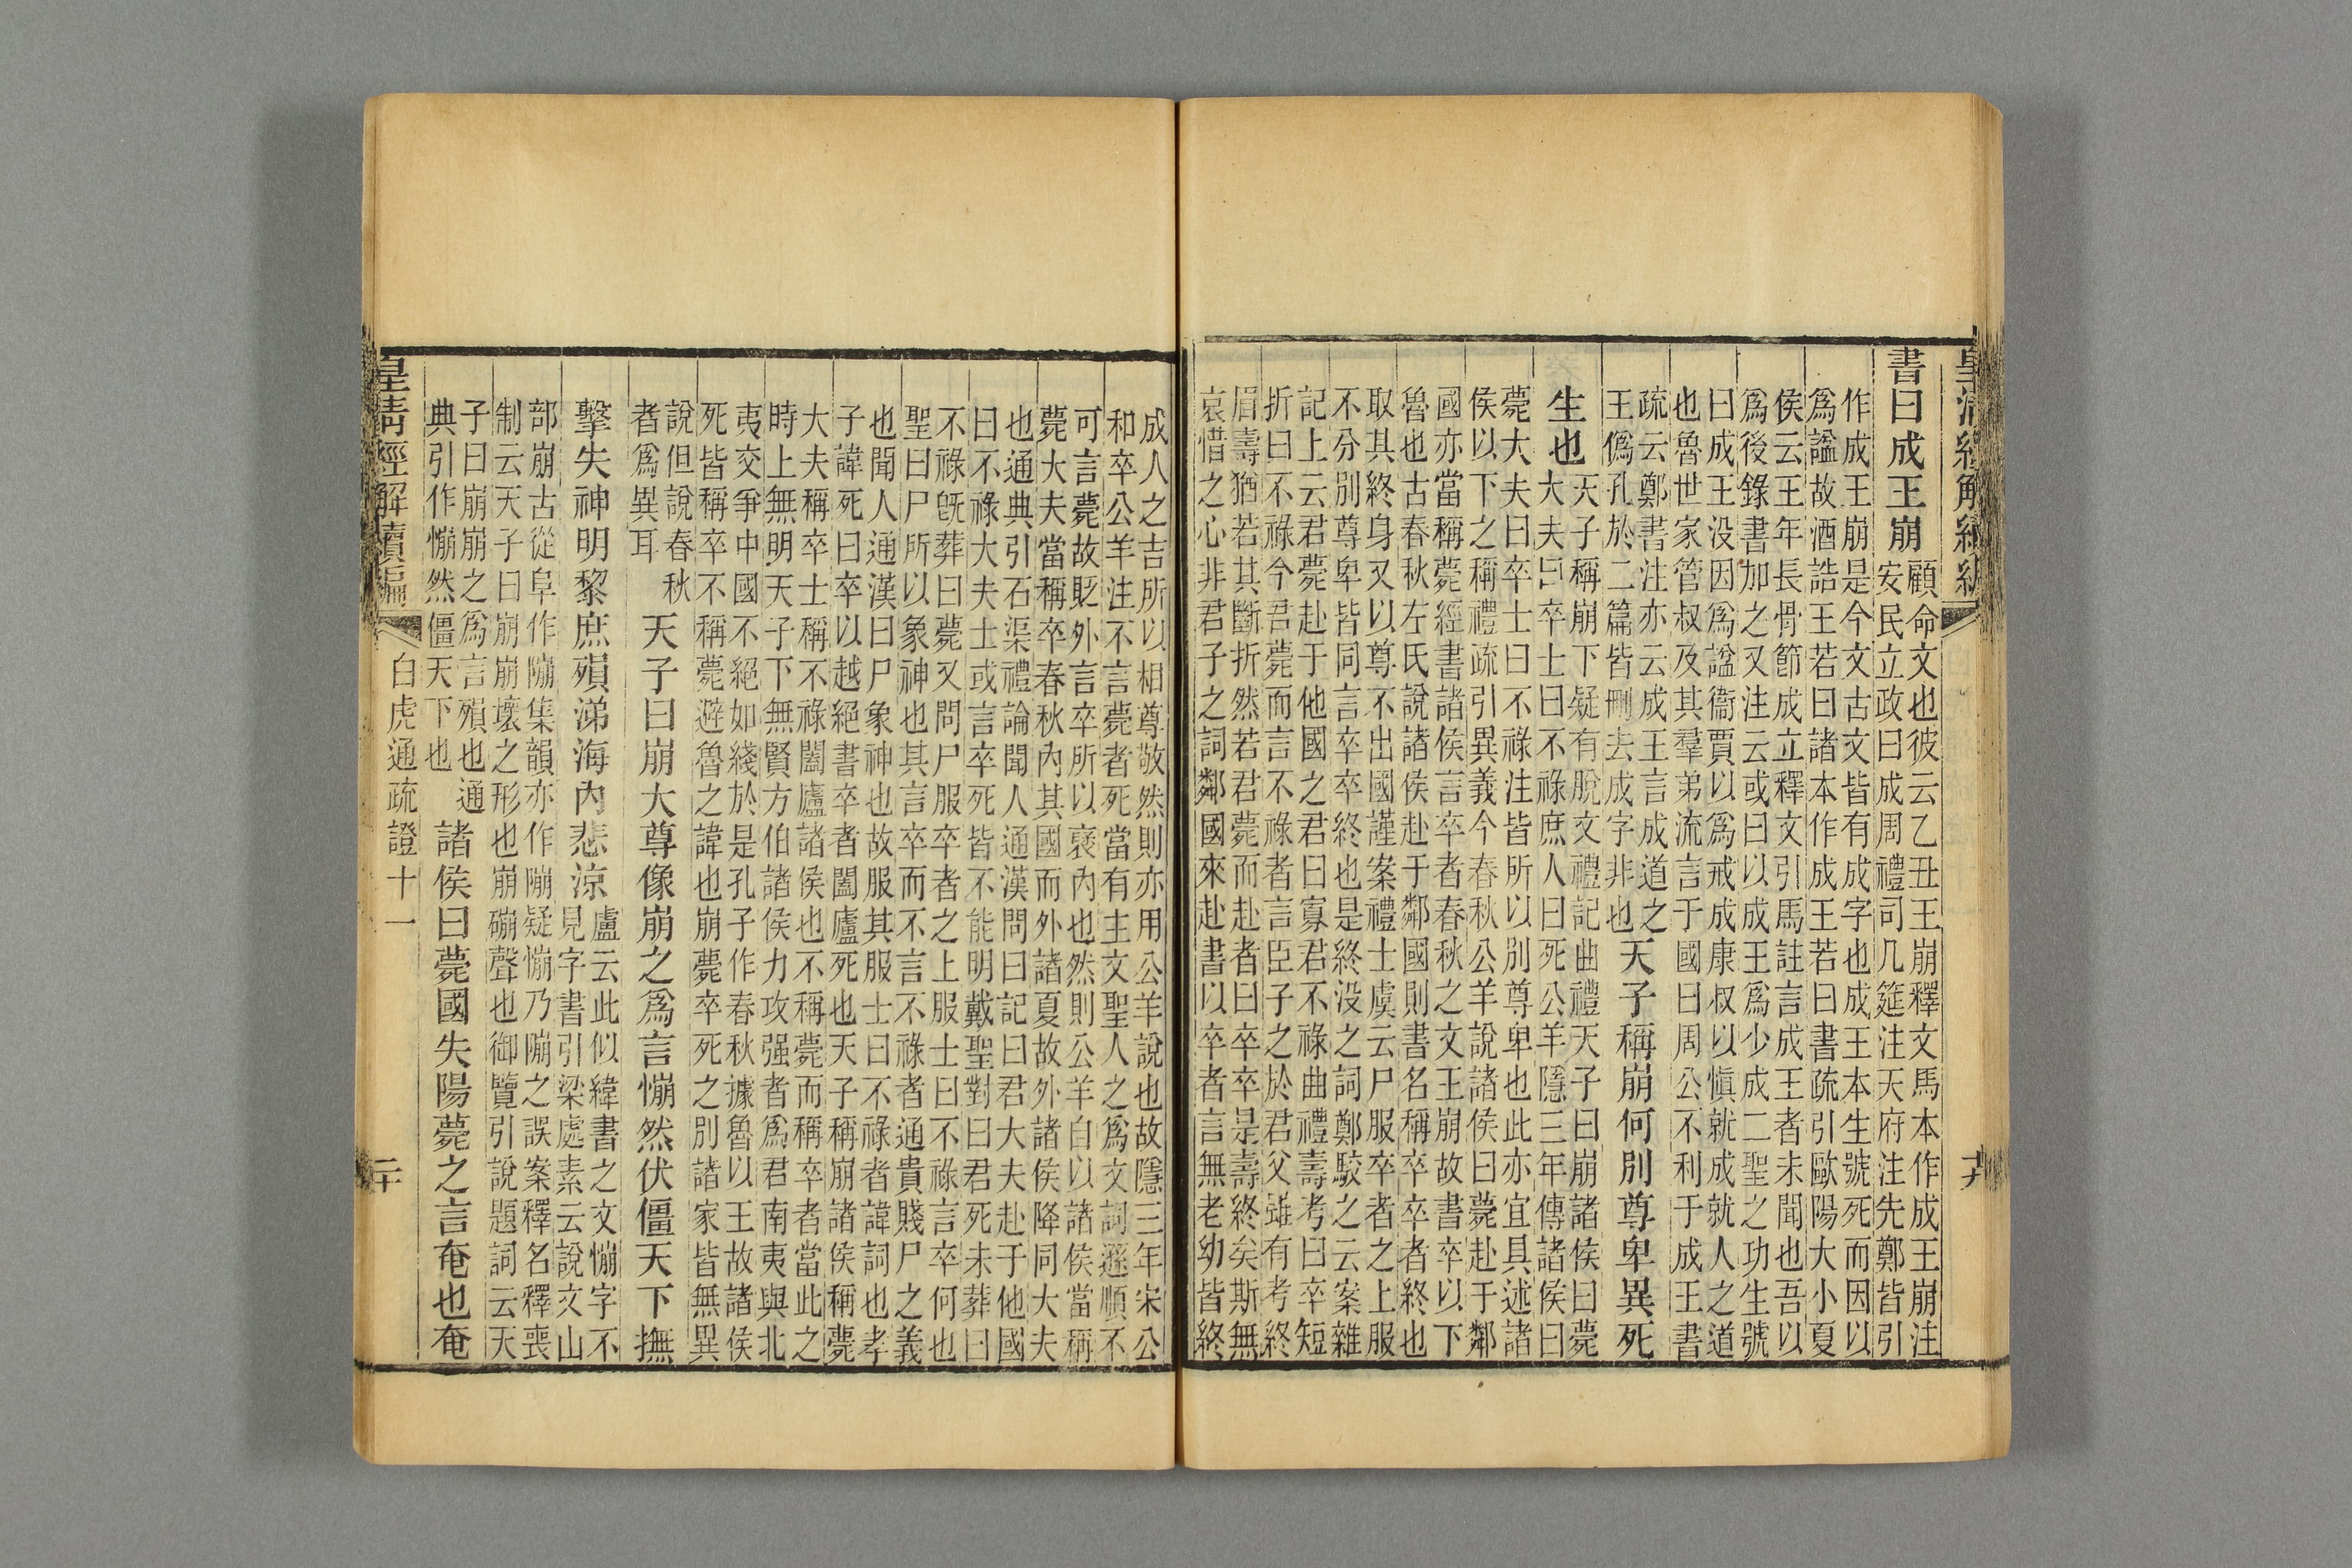 書曰成王崩
顧命文也彼云乙丑王崩釋文馬本作成王崩注
安民立政曰成周禮司几筵注天府注先鄭皆引
作成王崩是今文古文皆有成字也成王本生號死而因以
爲謚故酒誥王若曰諸本作成王若曰書疏引歐陽大小夏
侯云王年長骨節成立釋文引馬註言成王者未聞也吾以
爲後錄書加之又注云或曰以成王爲少成二聖之功生號
曰成王没因爲諡衞賈以爲戒成康叔以愼就成就人之道
也魯世家管叔及其羣弟流言于國曰周公不利于成王書
疏云鄭書注亦云成王言成道之
王僞孔於二篇皆刪去成字非也
天子稱崩何別尊卑異死
生也
天子稱崩下疑有脫文禮記曲禮天子曰崩諸侯曰薨
大夫曰卒士曰不祿庶人曰死公羊隱三年傳諸侯曰
薨大夫曰卒士曰不祿注皆所以別尊卑也此亦宜具述諸
侯以下之稱禮疏引異義今春秋公羊說諸侯曰薨赴于鄰
國亦當稱薨經書諸侯言卒者春秋之文王崩故書卒以下
魯也古春秋左氏說諸侯赴于鄰國則書名稱卒卒者終也
取其終身又以尊不出國謹案禮士虞云尸服卒者之上服
不分別尊卑皆同言卒卒終也是終没之詞鄭駮之云案雜
記上云君薨赴于他國之君曰寡君不祿曲禮壽考曰卒短
折曰不祿今君薨而言不祿者言臣子之於君父雖有考終
眉壽猶若其斷折然若君薨而赴者曰卒卒是壽終矣斯無
哀惜之心非君子之詞鄰國來赴書以卒者言無老幼皆終
成人之吉所以相尊敬然則亦用公羊說也故隱三年宋公
和卒公羊注不言薨者死當有主文聖人之爲文詞遜順不
可言薨故貶外言卒所以褒內也然則公羊自以諸侯當稱
薨大夫當稱卒春秋內其國而外諸夏故外諸侯降同大夫
也通典引石渠禮論聞人通漢問曰記曰君大夫赴于他國
曰不祿大夫士或言卒死皆不能明戴聖對曰君死未葬曰
不祿旣葬曰薨又問尸服卒者之上服士曰不祿言卒何也
聖曰尸所以象神也其言卒而不言不祿者通貴賤尸之義
也聞人通漢曰尸象神也故服其服士曰不祿者諱詞也孝
子諱死曰卒以越絕書卒者闔廬死也天子稱崩諸侯稱薨
大夫稱卒士稱不祿闔廬諸侯也不稱薨而稱卒者當此之
時上無明天子下無賢方伯諸侯力攻强者爲君南夷與北
夷交爭中國不絕如綫於是孔子作春秋據魯以王故諸侯
死皆稱卒不稱薨避魯之諱也崩薨卒死之別諸家皆無異
說但說春秋
者爲異耳
天子曰崩大尊像崩之爲言然伏僵天下撫
擊失神明黎庶殞涕海內悲涼
盧云此似緯書之文字不
見字書引梁處素云說文山
部崩古從阜作集韻亦作疑乃之誤案釋名釋喪
制云天子曰崩崩壞之形也崩硼聲也御覽引說題詞云天
子曰崩崩之爲言殞也通
典引作然僵天下也
諸侯曰薨國失陽薨之言奄也奄
皇清經解續編
白虎通疏證十一
二十